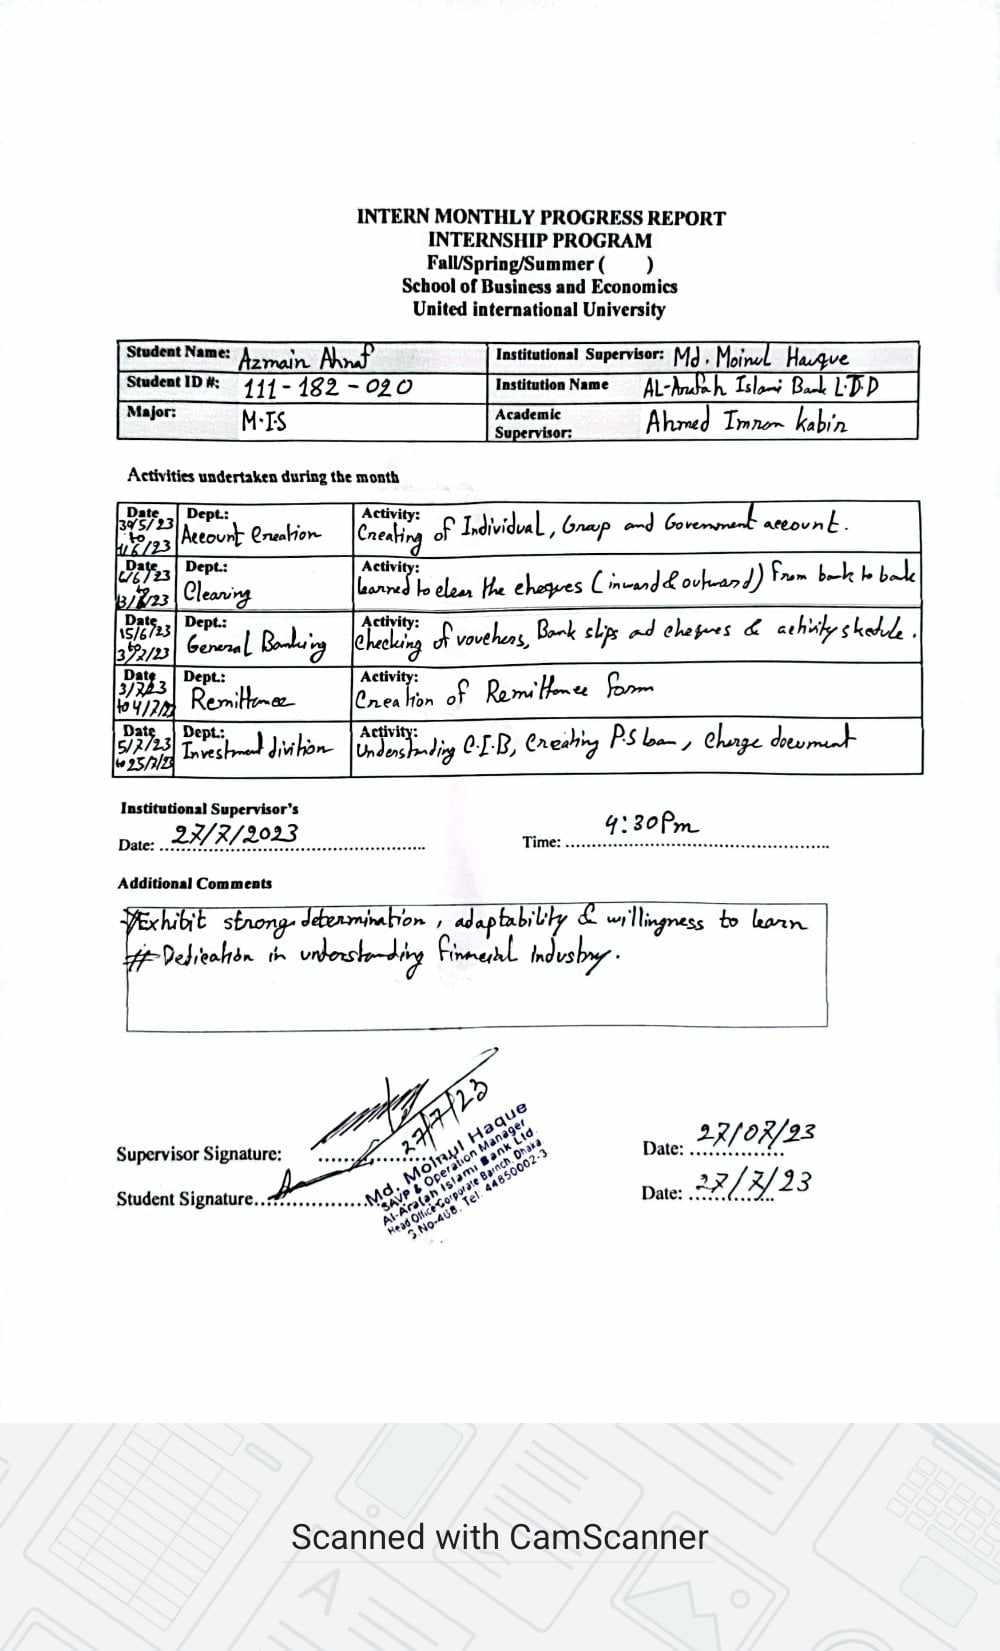 INTERN MONTHLY PROGRESS REPORT
INTERNSHIP PROGRAM
Fall/Spring/Summer (      )
School of Business and Economics
United international University
Student Name: Azmain Ahnaf
Institutional Supervisor: Md. Moinul Hauque
Student ID #: 111-182-020
Institution Name AL-Arafah Islami Bank L.T.D
Major: M.I.S
Academic Supervisor: Ahmed Imran Kabir
Activities undertaken during the month
Date /5/23 to /6/23 Dept.: Account Creation Activity: Creating of Individual, Group and Government account.
Date /6/23 to Dept.: Clearing Activity: learned to clear the cheques (inward & outward) From bank to bank
Date 15/6/23 to Dept.: General Banking Activity: Checking of vouchers, Bank slips ad cheques & activity skedule.
Date 3/7/23 to 4/7/23 Dept.: Remittance Activity: Creation of Remittance form
Date 5/7/23 to 25/7/23 Dept.: Investment divition Activity: Understanding C.I.B, Creating P.S loan, Charge document
Institutional Supervisor's
Date: 27/7/2023
Time: 4:30Pm
Additional Comments
Exhibit strong determination, adaptability & willingness to learn
# Dedication in understanding financial Industry.
27/7/23
Supervisor Signature:
Date: 27/07/23
Student Signature
Date: 27/7/23
Md. Moinul Haque
SAVP & Operation Manager
Al-Arafah Islami Bank Ltd.
Head Office Corporate Barnch, Dhaka
S.No-408, Tel: 44850002-3
Scanned with CamScanner